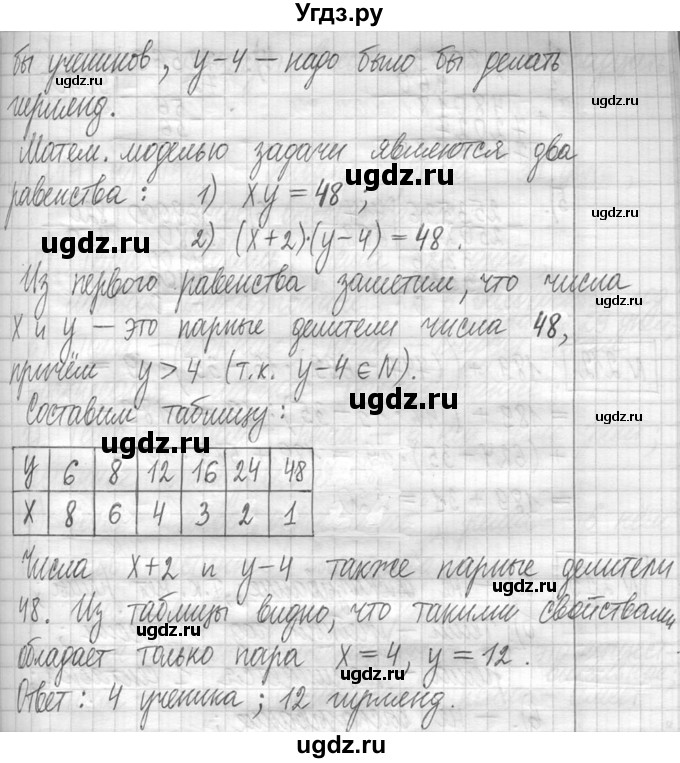 Угдз.ру
бы учеников, y-4 – надо было бы делать
гирлянд.
Матем. моделью задачи являются два
равенства: 1) xy = 48 ;
2) (x+2)·(y-4) = 48 .
Из первого равенства заметим, что числа
x и y – это парные делители числа 48,
причём y > 4 (т.к. y-4 ∈ N).
Составим таблицу:
y 6 8 12 16 24 48
x 8 6 4 3 2 1
Числа x+2 и y-4 также парные делители
48. Из таблицы видно, что такими свойствами
обладает только пара x = 4, y = 12 .
Ответ: 4 ученика ; 12 гирлянд.
ugdz.ru
ugdz.ru
ugdz.ru
ugdz.ru
ugdz.ru
ugdz.ru
ugdz.ru
ugdz.ru
ugdz.ru
ugdz.ru
ugdz.ru
ugdz.ru
ugdz.ru
ugdz.ru